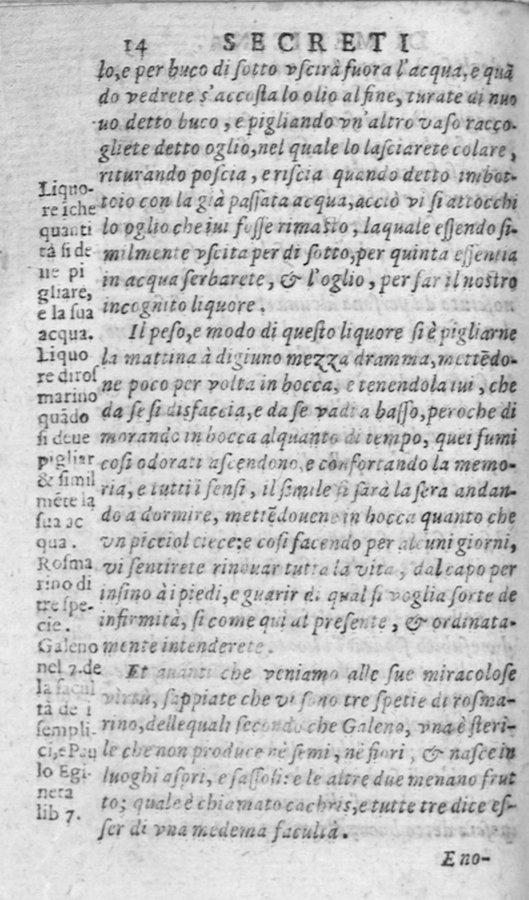 14 SECRETI
lo, e per buco di ſotto vſcirà fuora l'acqua, e quã
do vedrete s'accoſta lo olio al fine, turate di nuo
uo detto buco, e pigliando vn'altro vaſo racco-
gliete detto oglio, nel quale lo laſciarete colare,
riturando poſcia, e riſcia quando detto imbot-
toio con la già paſſata acqua, acciò vi ſi attocchi
lo oglio che iui foſſe rimaſto, laquale eſſendo ſi-
milmente vſcita per di ſotto, per quinta eſſentia
in acqua ſerbarete, & l'oglio, per far il noſtro
incognito liquore.
Il peſo, e modo di queſto liquore ſi è pigliarne
la mattina à digiuno mezza dramma, mettẽdo-
ne poco per volta in bocca, e tenendola iui, che
da ſe ſi disfaccia, e da ſe vadi a baſſo, peroche di
morando in bocca alquanto di tempo, quei fumi
coſi odorati aſcendono, e confortando la memo-
ria, e tutti i ſenſi, il ſimile ſi farà la ſera andan-
do a dormire, mettẽdouene in bocca quanto che
vn picciol cece: e coſi facendo per alcuni giorni,
vi ſentirete rinouar tutta la vita, dal capo per
inſino à i piedi, e guarir di qual ſi voglia ſorte de
infirmità, ſi come qui al preſente, & ordinata-
mente intenderete.
Et auanti che veniamo alle ſue miracoloſe
virtù, ſappiate che vi ſono tre ſpetie di roſma-
rino, delle quali ſecondo che Galeno, vna è ſteri-
le che non produce nè ſemi, nè fiori, & naſce in
luoghi aſpri, e ſaſſoſi: e le altre due menano frut
to; quale è chiamato cachris, e tutte tre dice eſ-
ſer di vna medema facultà.
Eno-
Liquo-
re iche
quanti
tà ſi de
ue pi
gliare,
e la ſua
acqua.
Liquo
re di roſ
marino
quãdo
ſi deue
pigliar
& ſimil
mẽte la
ſua ac
qua.
Roſma
rino di
tre ſpe-
cie.
Galeno
nel 7. de
la facul
tà de i
ſempli-
ci, e Pau
lo Egi-
neta
lib 7.